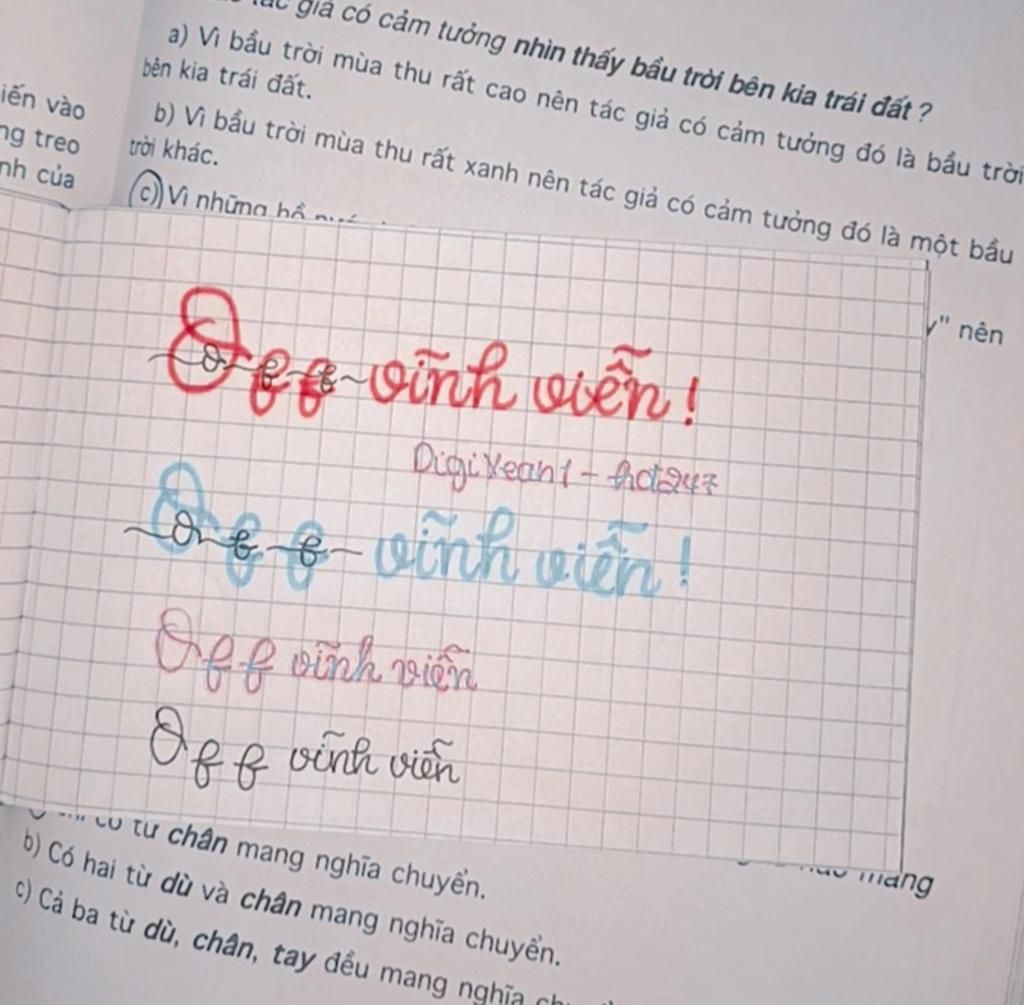 giả có cảm tưởng nhìn thấy bầu trời bên kia trái đất ?
a) Vì bầu trời mùa thu rất cao nên tác giả có cảm tưởng đó là bầu trời
bên kia trái đất.
b) Vì bầu trời mùa thu rất xanh nên tác giả có cảm tưởng đó là một bầu
trời khác.
c) Vì những
iến vào
ng treo
nh của
" nên
Off vĩnh viễn!
DigiYeah1 - hd247
Off vĩnh viễn!
Off vĩnh viễn
Off vĩnh viễn
có từ chân mang nghĩa chuyển.
mang
b) Có hai từ dù và chân mang nghĩa chuyển.
c) Cả ba từ dù, chân, tay đều mang nghĩa